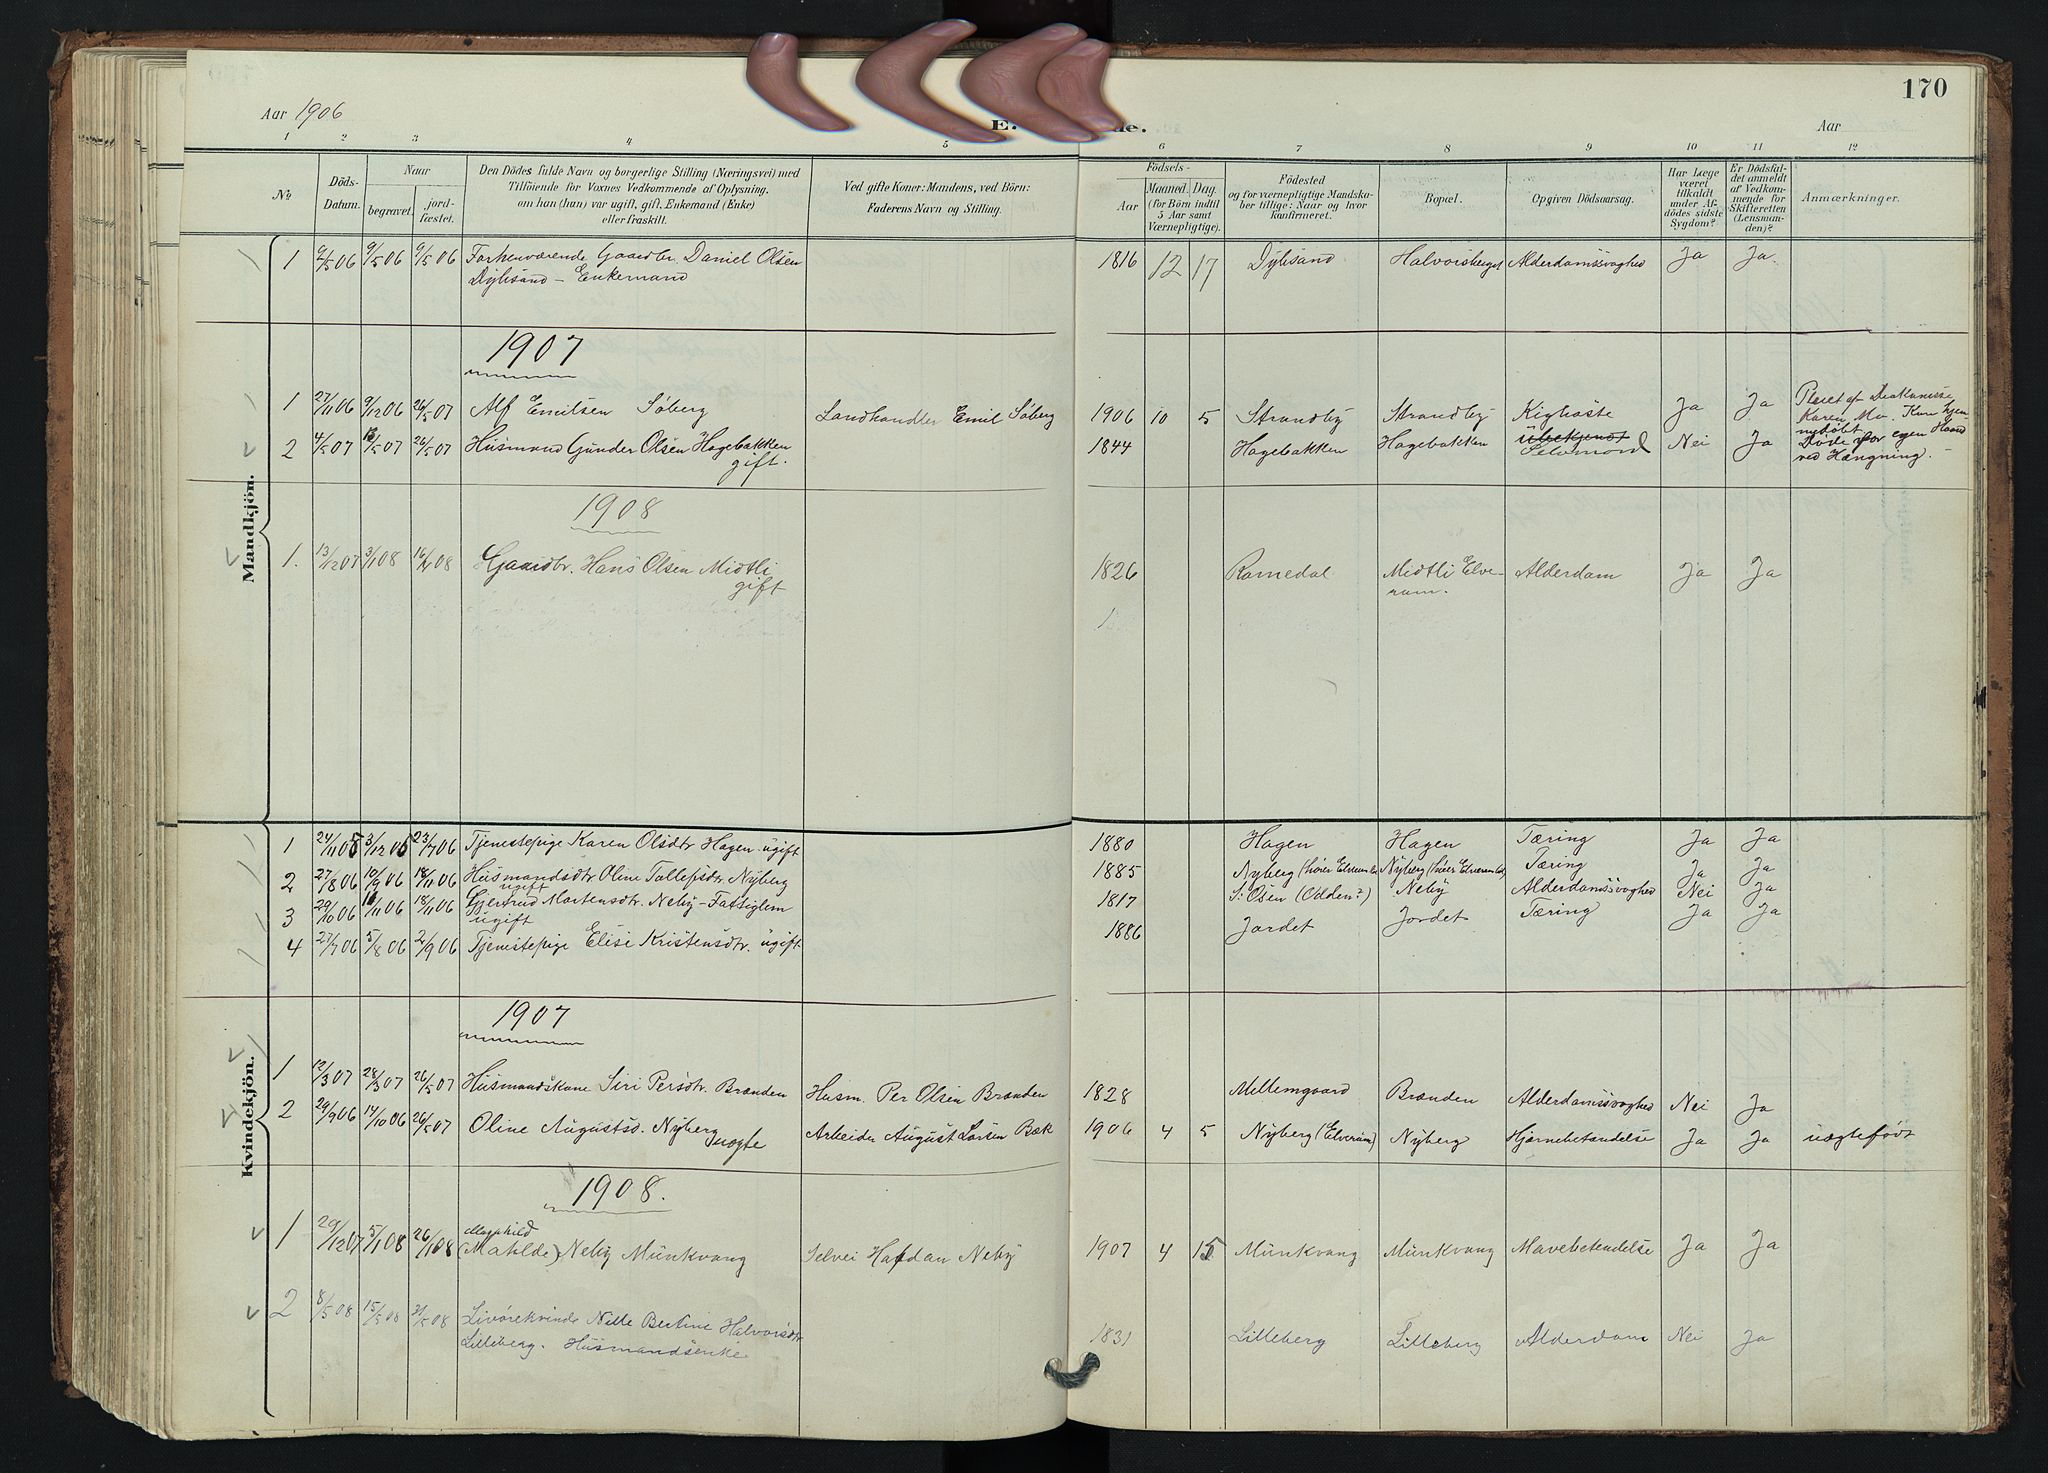 170
Aar 1906
E. de.
Aar
1 2 3 4 5 6 7 8 9 10 11 12
№
Döds-Datum.
Naar
begravet.
jord-fæstet.
Den Dödes fulde Navn og borgerlige Stilling (Næringsvei) med
Tilföiende for Voxnes Vedkommende af Oplysning.
om han (hun) var ugift, gift, Enkemand (Enke)
eller fraskilt.
Ved gifte Koner: Mandens, ved Börn:
Faderens Navn og Stilling.
Födsels-
Aar
Maaned. Dag.
(for Börn indtil
5 Aar samt
Værnepligtige).
Födested
og for værnepligtige Mandska-
ber tillige: Naar og hvor
konfirmeret.
Bopæl.
Opgiven Dödsaarsag.
Har Læge
været
tilkaldt
under Af-
dödes sidste
Sygdom?
Er Dödsfal-
det anmeldt
af Vedkom-
mende for
Skifteretten
(Lensman-
den)?
Anmærkninger.
Mandkjön.
1 2/5 06 9/5 06 9/5 06 Forhenværende Gaardbr. Daniel Olsen 1816 12 17 Dylisand Halvorsberget Alderdomssvaghed Ja Ja
Dylisand – Enkemand
1907
1 27/11 06 9/12 06 26/5 07 Alf Emilsen Söberg Landhandler Emil Söberg 1906 10 5 Strandby Strandby Kighoste Ja Ja Pleiet af Diakonisse
Karen Mo. Kun hjem
medöbt
2 4/5 07 13/5 07 26/5 07 Husmand Gunder Olsen Hagebakken 1844 Hagebakken Hagebakken Ubekjendt Nei Ja Döde for egen Haand
gift. Selvmord ved Hængning. –
1908
1. 13/12 07 3/1 08 16/4 08 Gaardbr. Hans Olsen Midtli 1826 Romedal Midtli Elve- Alderdom Ja Ja
gift rum.
Kvindekjön.
1 24/11 05 3/12 05 23/7 06 Tjenestepige Karen Olsdtr Hagen ugift 1880 Hagen Hagen Tæring Ja Ja
2 27/8 06 10/9 06 18/11 06 Husmandsdtr Oline Tollefsdtr. Nyberg 1885 Nyberg Nyberg Tæring Ja Ja
ugift
3 29/10 06 11/11 06 18/11 06 Gjertrud Mortensdtr. Neby – Fattiglem 1817 S. Osen (Odden?) Neby Alderdomssvaghed Nei Ja
ugift
4 27/7 06 5/8 06 2/9 06 Tjenestepige Elise Kristensdtr. ugift 1886 Jordet Jordet Tæring Ja Ja
1907
1 12/3 07 28/3 07 26/5 07 Husmandskone Siri Persdtr. Brænden Husm. Per Olsen Brænden 1828 Mellemgaard Brænden Alderdomssvaghed Nei Ja
2 29/9 06 14/10 06 26/5 07 Oline Augustsd. Nyberg Arbeider August Larsen Bæk 1906 4 5 Nyberg (Elverum) Nyberg Hjernebetændelse Ja Ja uægtefödt
uægte
1908.
1 29/12 07 5/1 08 26/1 08 Magnhild
(Matilde) Neby Munkvang Selvei Halfdan Neby 1907 4 15 Munkvang Munkvang Mavebetendelse Ja Ja
2 8/5 08 15/5 08 31/5 08 Livörekvinde Nille Bertine Halvorsdtr 1831 Lilleberg Lilleberg Alderdom Nei Ja
Lilleberg. Husmandsenke